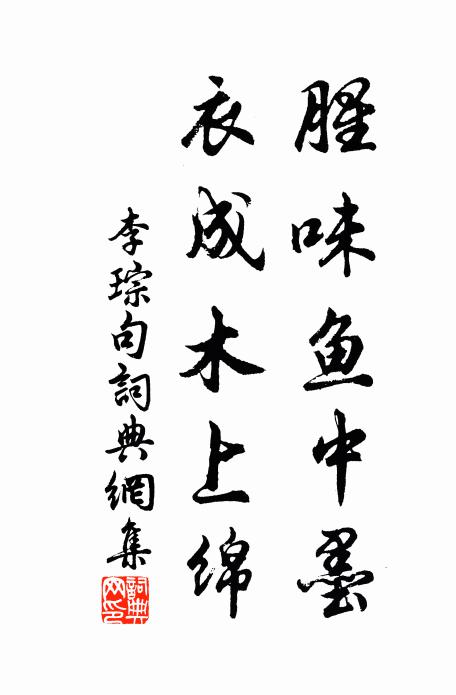 腥味鱼中墨
衣成木上绵
李琮句詞典網集